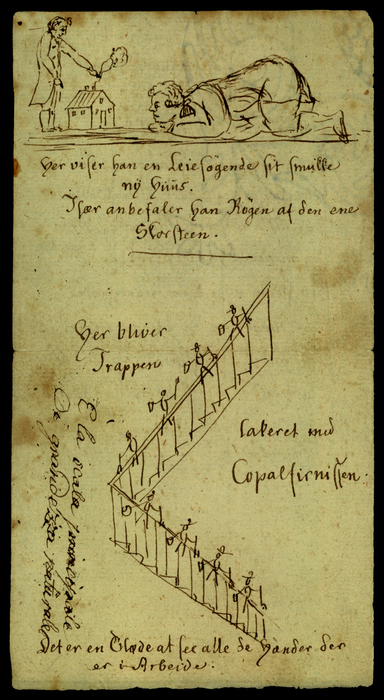 Her viser han en Leiesøgende sit smukke
nÿ Huus.
Især anbefaler han Røgen af den ene
Skorsteen.
Her bliver
Trappen
lakeret med
Copalfirnissen.
E la scala principale
De grandezza naturale
Det er en Glæde at see alle de Hænder der
er i Arbeide.